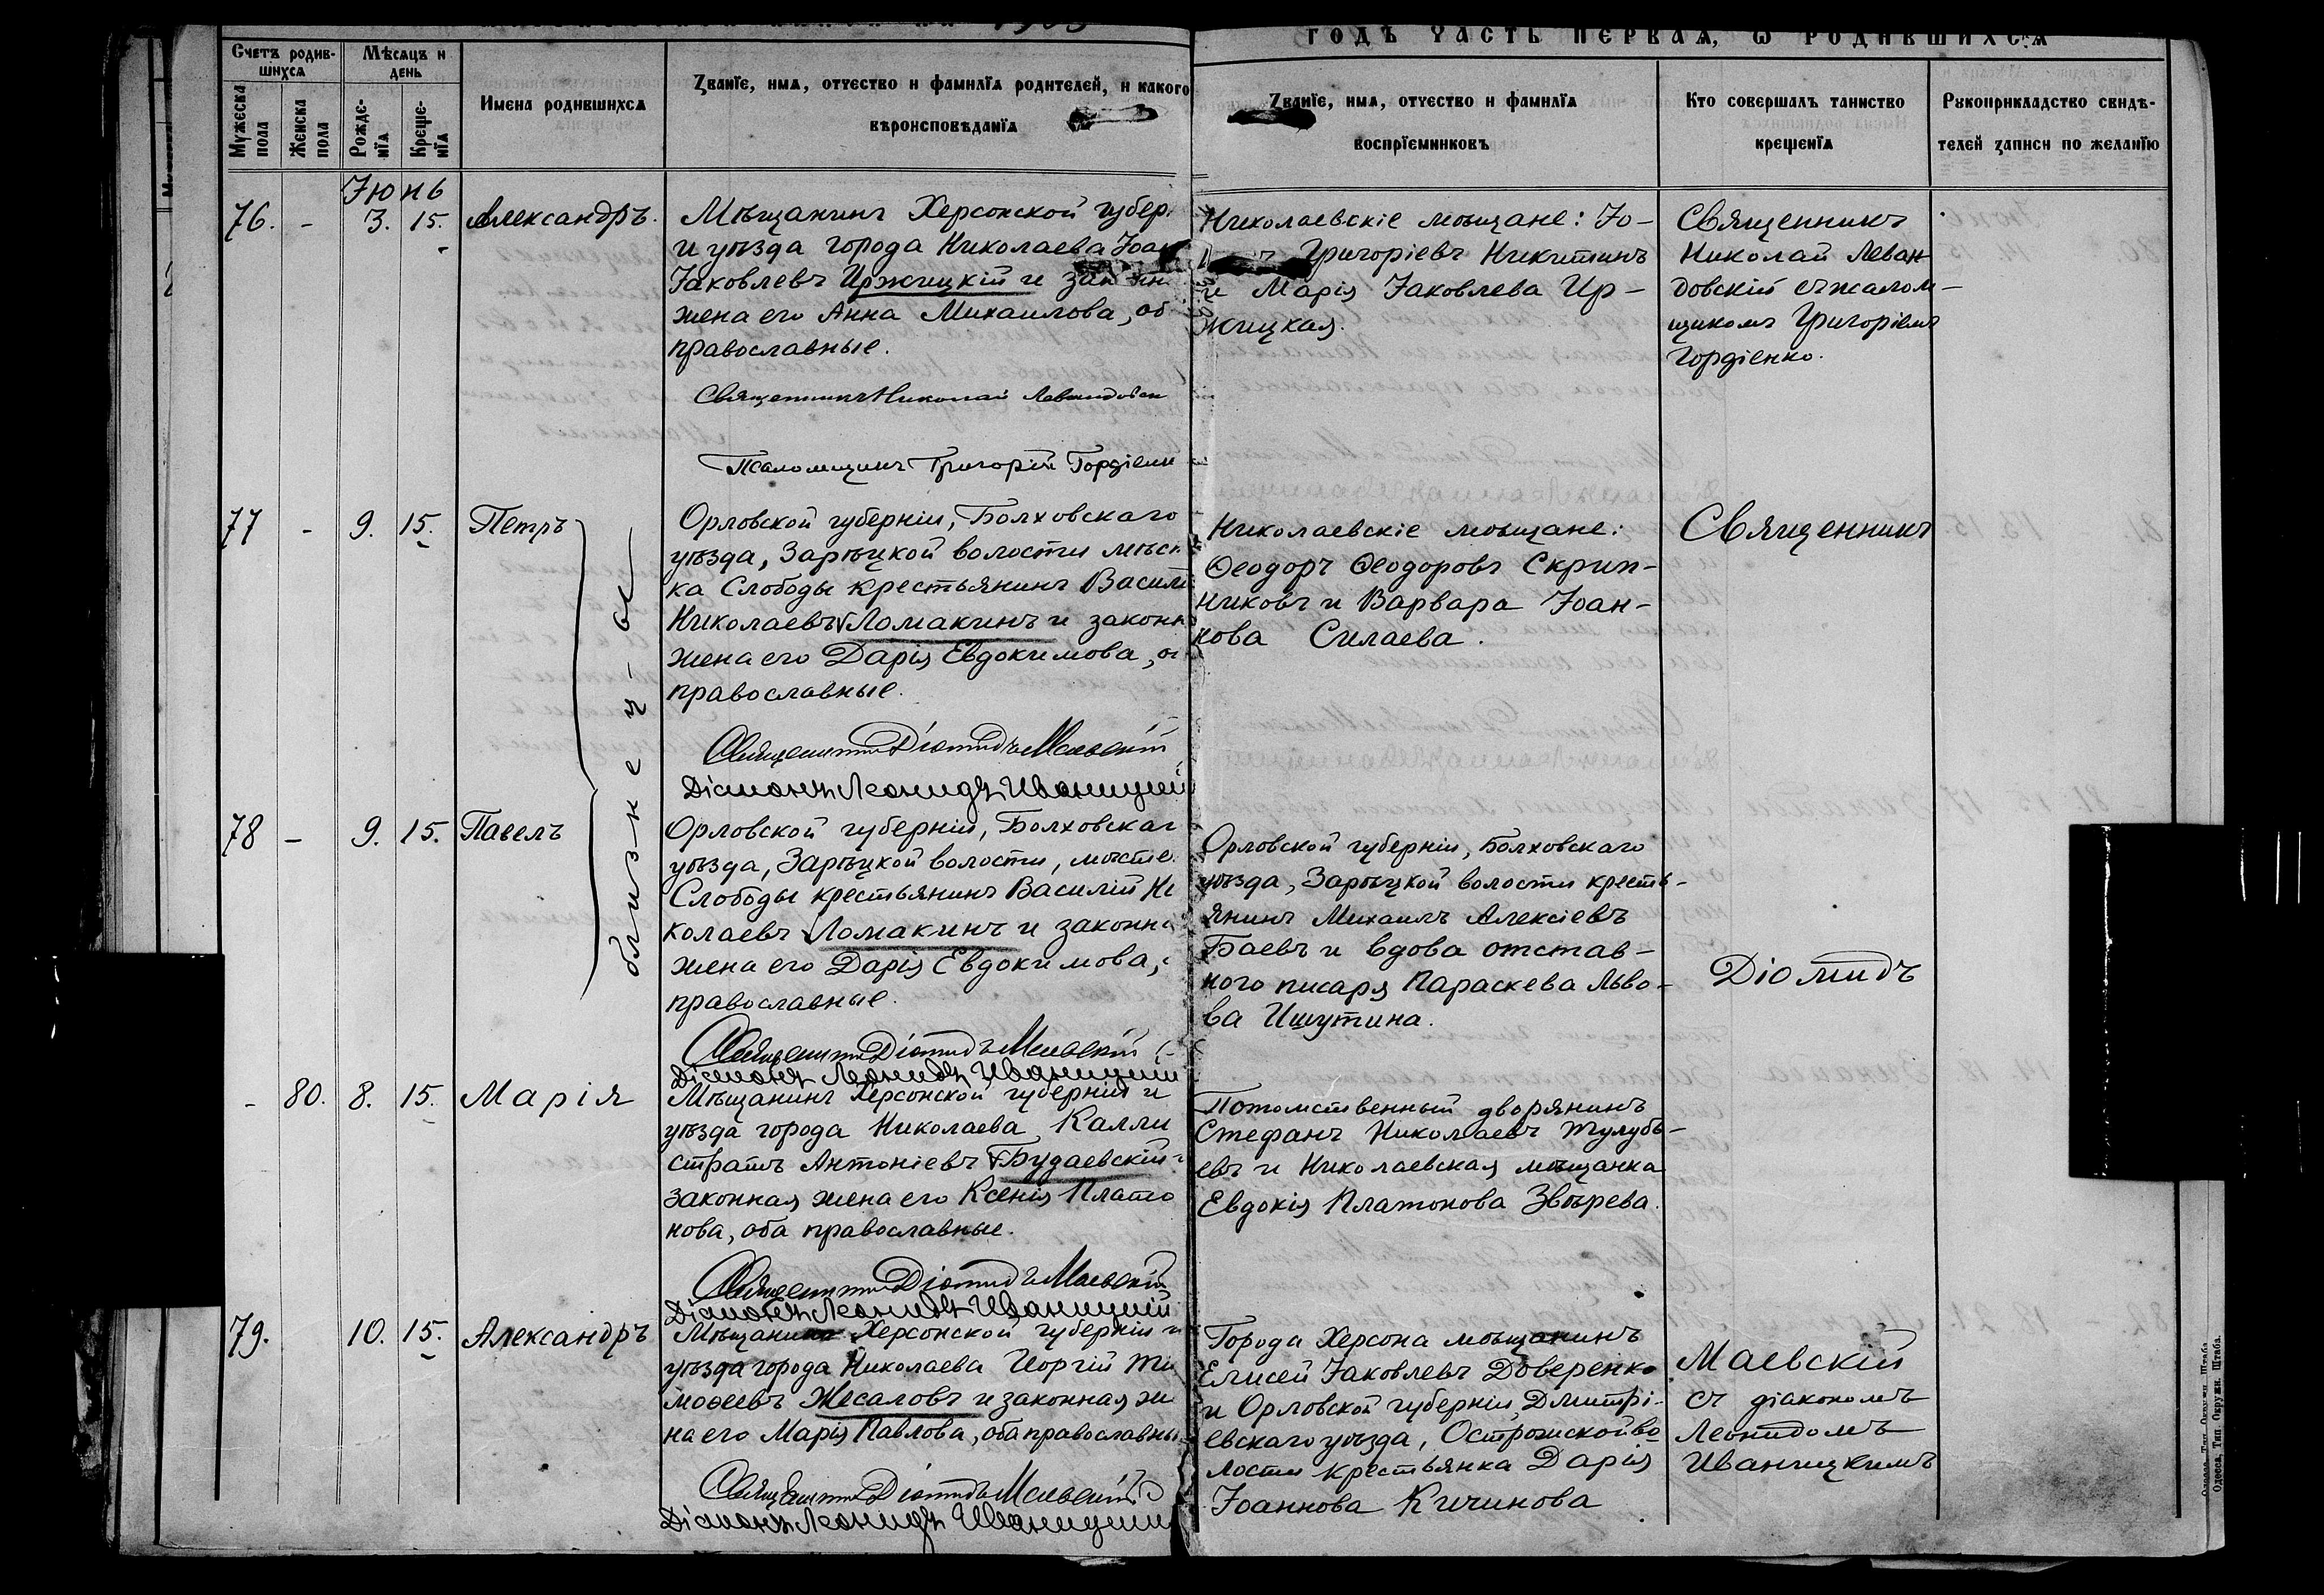 годъ часть первая, ѡ родившихся
Счетъ родив-
шихся
Мѣсяцъ и
день
Мужеска
пола
Женска
пола
Рожде-
нїя
Креще-
нїя
Имена родившихся
Званїе, имя, отчество и фамилїя родителей, и какого
вѣроисповѣданїя
Званїе, имя, отчество и фамилїя
воспрїемниковъ
Кто совершалъ таинство
крещенїя
Рукоприкладство свидѣ-
телей записи по желанїю
Іюнь
76. - 3. 15. Александръ.
Мѣщанинъ Херсонской губер.
и уѣзда города Николаева Іоан
Іаковлевъ Иржицкій и
жена его Анна Михаилова, об
православные.
Священникъ Николай
Псаломщикъ Григорій Гордіенк
Николаевскіе мѣщане: Іо-
Григоріевъ Никитинъ
и Марія Іаковлева Ир-
жицкая.
Священникъ
Николай Леван-
довскій съ псалом-
щикомъ Григоріемъ
Гордіенко.
77 - 9. 15. Петръ
близнецы
Орловской губерніи, Болховскаго
уѣзда, Зарѣцкой волости
ка Слободы крестьянинъ Васили
Николаевъ Ломакинъ и законн
жена его Дарія Евдокимова,
православные.
Священникъ Діомидъ Маевскій
Діаконъ Леонидъ Иваницкій
Николаевскіе мѣщане:
Ѳеодоръ Ѳеодоровъ Скрип-
никовъ и Варвара Іоан-
нова Силаева.
Священникъ
78 - 9. 15. Павелъ
Орловской губерніи, Болховскаг
уѣзда, Зарѣцкой волости, мѣсте.
Слободы крестьянинъ Василій Ни
колаевъ Ломакинъ и законна
жена его Дарія Евдокимова,
православные.
Священникъ Діомидъ Маевскій
Діаконъ Леонидъ Иваницкій
Орловской губерніи, Болховскаго
уѣзда, Зарѣцкой волости кресть-
янинъ Михаилъ Алексіевъ
Баевъ и вдова отстав-
ного писаря Параскева Льво-
ва Ишутина.
Діомидъ
- 80. 8. 15. Марія
Мѣщанинъ Херсонской губерніи и
уѣзда города Николаева Калли
стратъ Антоніевъ Будаевскій
законная жена его Ксенія Плато
нова, оба православные.
Священникъ Діомидъ Маевскій
Діаконъ Леонидъ Иваницкій
Потомственный дворянинъ
Стефанъ Николаевъ Тулубь-
евъ и Николаевская мѣщанка
Евдокія Платонова Звѣрева.
79. 10. 15. Александръ
Мѣщанинъ Херсонской губерніи и
уѣзда города Николаева Георгій Ти
моѳеевъ Жесаловъ и законная же
на его Марія Павлова, оба православны
Священникъ Діомидъ Маевскій
Діаконъ Леонидъ Иваницкій
Города Херсона мѣщанинъ
Елисей Іаковлевъ Доверенко
и Орловской губерніи, Дмитрі-
евскаго уѣзда, во
лости крестьянка Дарія
Іоаннова Кичинова
Маевскій
съ діакономъ
Леонидомъ
Иваницкимъ
Одесса, Тип. Окружн. Штаба.